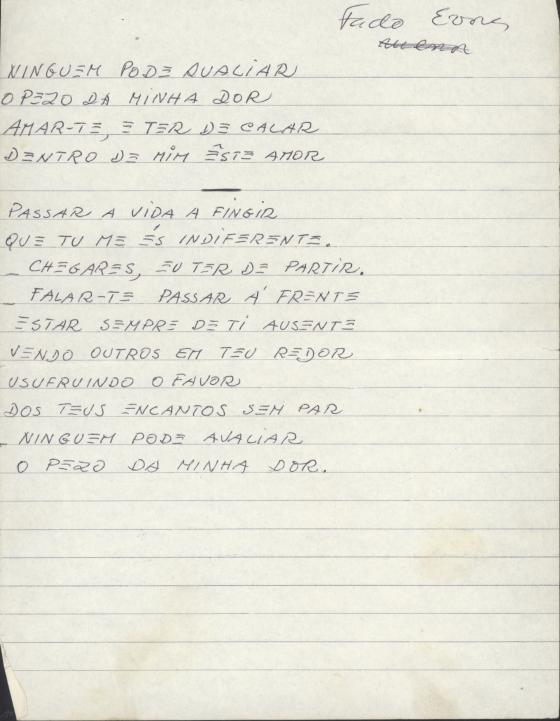 Fado
NINGUEM PODE AVALIAR
O PEZO DA MINHA DOR
AMAR-TE, E TER DE CALAR
DENTRO DE MIM ÊSTE AMOR
PASSAR A VIDA A FINGIR
QUE TU ME ÉS INDIFERENTE.
_ CHEGARES, EU TER DE PARTIR.
_ FALAR-TE PASSAR Á FRENTE
ESTAR SEMPRE DE TI AUSENTE
VENDO OUTROS EM TEU REDOR
USUFRUINDO O FAVOR
DOS TEUS ENCANTOS SEM PAR
_ NINGUEM PODE AVALIAR
O PEZO DA MINHA DOR.